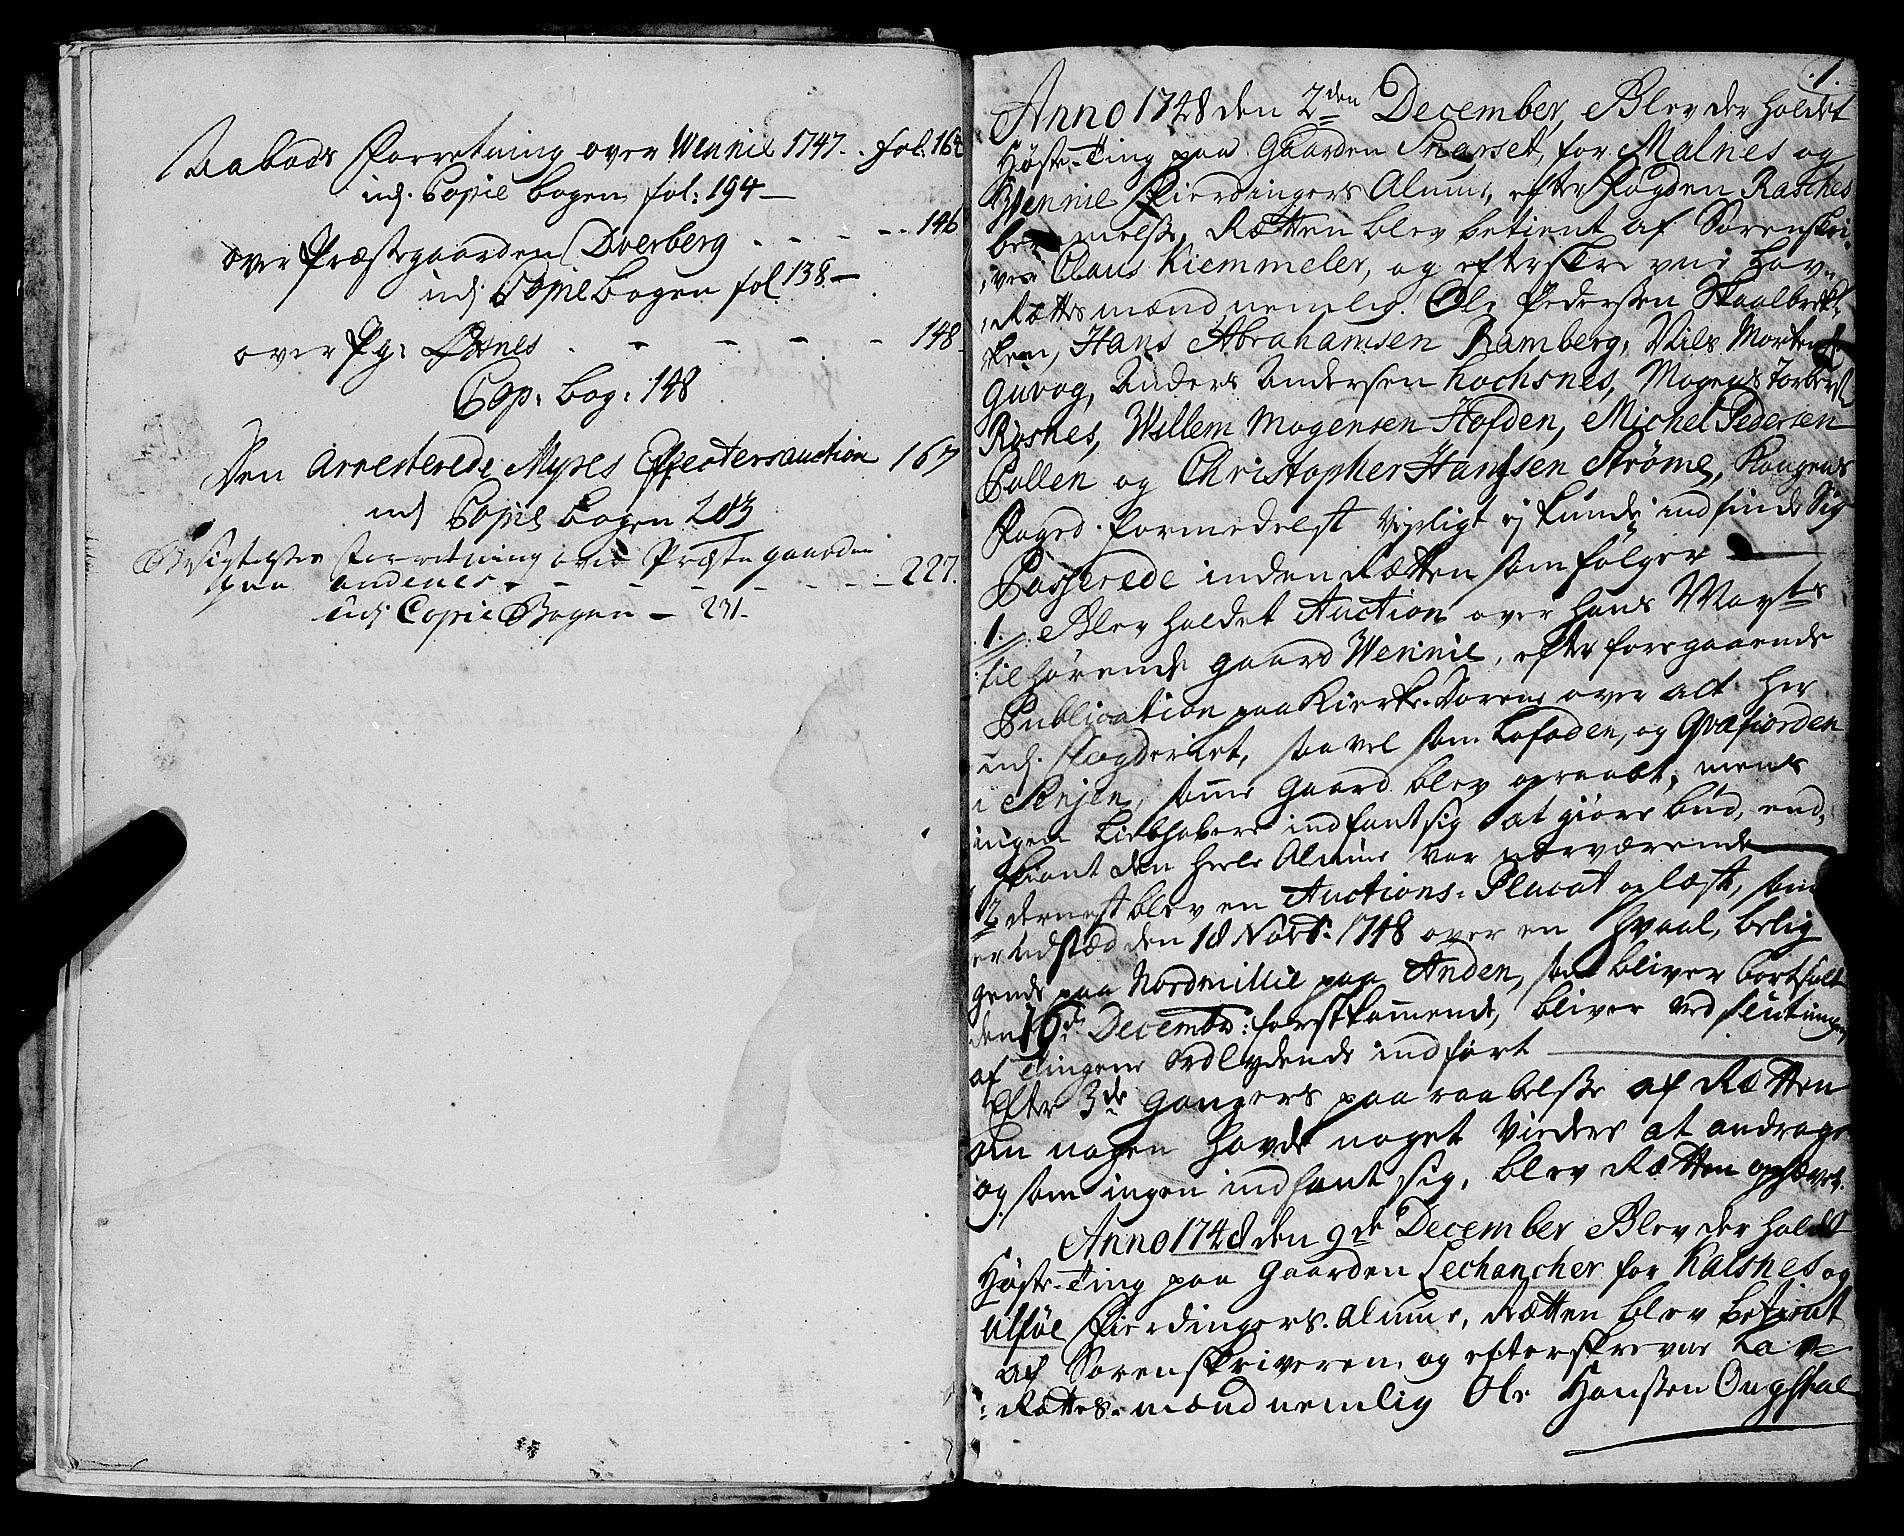 Aabods Forretning over Wennie 1747. . fol: 168
udj Copie bogen fol: 194 —
over Præstegaarden Dverberg - - - - - - 146
udj Copie bogen fol 138 —
over Pg: Øxnes - - - - - - 148
Cop. bog: 148
Den Arresterede Myses Effecters auction 167
udj Copie bogen 203
Besigtelses Forretning over Præste gaarden
paa andenes - - - - - - 227.
udj Copie Bogen — 231 -
.1.
Anno 1748 den 2den December, Blev der holdet
Høste-Ting paa Gaarden Snarset, for Malnes og
Wennie Fierdingers Almue, efter Fogden Rasches
Rætten blev betient af Sorenskri-
:ver Claus Kiemmeler, og efterskrevne Lav-
:Rættes mænd nemlig. Ole Pedersen Skaalbrek-
ken, Hans Abrahamsen Ramberg, Niels Mortens:
Guvog, Anders Andersen Lochsnes, Mogens Torbers:
Røsnes, Willem Mogensen Hofden, Michel Pedersen
Pollen og Christopher Hanssen Strøme, Kongens
Foged formedelst Upligt ej kunde indfinde Sig
Passerede inden Rætten som følger —
1. Blev holdet Auction over hans Mayts
tilhørende gaard Wennie, efter foregaaende
Publication paa Kierke-Sorene over alt her
udj Fogderiet, saavel som Lofoden, og Qvæfiorden
i Senjen, samme Gaard blev opraabt, mens
ingen Liebhabere indfant sig at giøre bud, end-
skiønt den heele Almue var nærværende —
2 dernest blev en Auctions-Placat oplæst, som
er udstæd den 18 Novbr. 1748 over en Hvaal, belig
gende paa Nordmillie paa Anden, som bliver bortsolt
den 16de Decembr: førstkommende, bliver ved slutningen
af Tingene ordlydende indført —
Efter 3de Gangers paaraabelse af Rætten
om nogen havde noget Videre at andrage
og som ingen indfant sig, blev Rætten ophævet.
Anno 1748 den 9de December Blev der holdet
Høste-Ting paa Gaarden Lechancher for Kalsnes og
Ulføe Fierdingers Almue, Rætten blev betient
af Sorenskriveren, og efterskrevne Lav-
:Rættes-mænd nemlig Ole Hanssen Ongstal